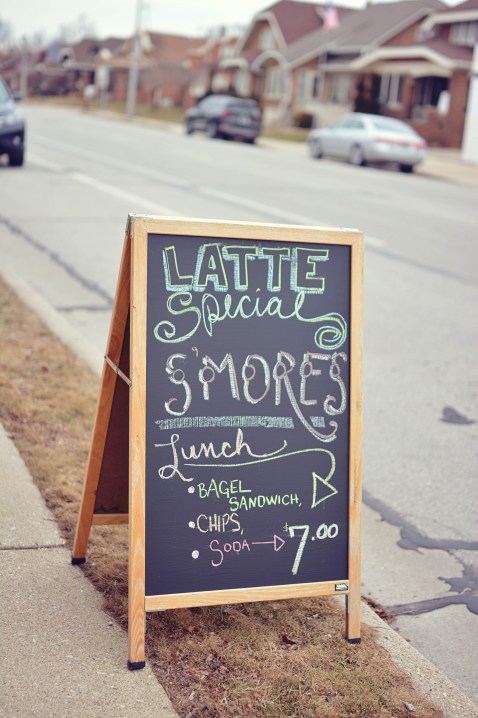 LATTE
Special
S'MORES
Lunch
• BAGEL
SANDWICH,
• CHIPS,
• SODA → $7.00